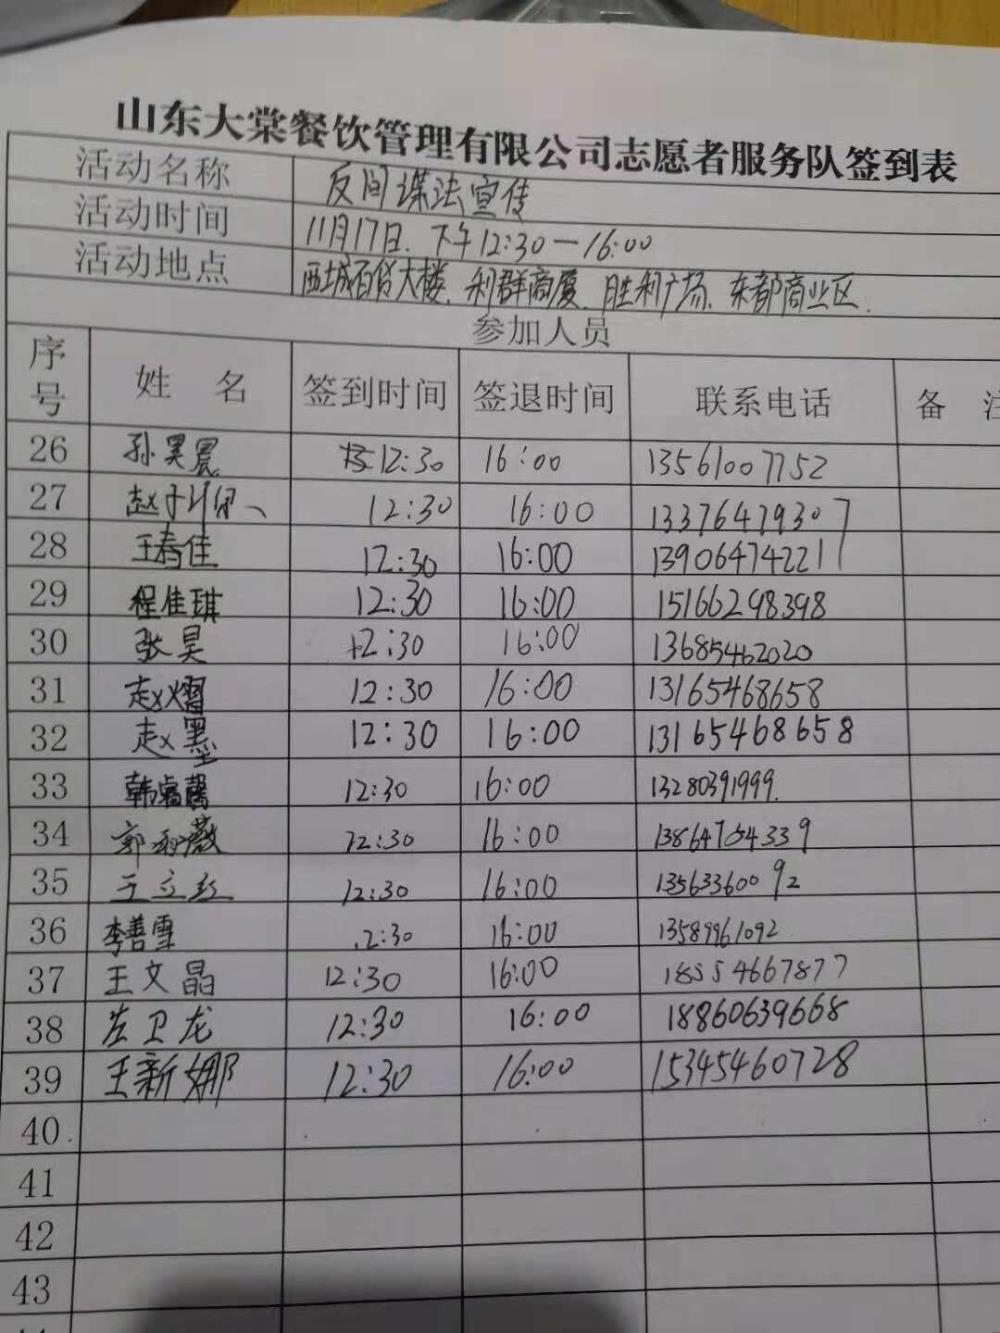 山东大棠餐饮管理有限公司志愿者服务队签到表
活动名称 反间谍法宣传
活动时间 11月17日.下午12:30—16:00
活动地点 西城百货大楼、利群商厦、胜利广场、东都商业区.
参加人员
序号 姓名 签到时间 签退时间 联系电话 备注
26 孙昊晨 12:30 16:00 13561007752
27 赵子 12:30 16:00 13376479307
28 王春佳 12:30 16:00 13906474221
29 程佳琪 12:30 16:00 15166298398
30 张昊 12:30 16:00 13685462020
31 赵熠 12:30 16:00 13165468658
32 赵墨 12:30 16:00 13165468658
33 韩睿馨 12:30 16:00 13280391999.
34 郭雨薇 12:30 16:00 13864754339
35 王立红 12:30 16:00 13563360092
36 李善雪 12:30 16:00 13589961092
37 王文晶 12:30 16:00 18554667877
38 左卫龙 12:30 16:00 18860639668
39 王新娜 12:30 16:00 15345460728
40.
41
42
43